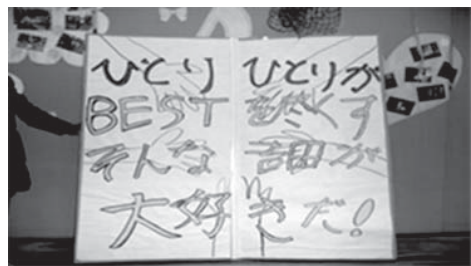 ひとり ひとりが
BEST を尽くす
そんな 調田が
大好きだ!